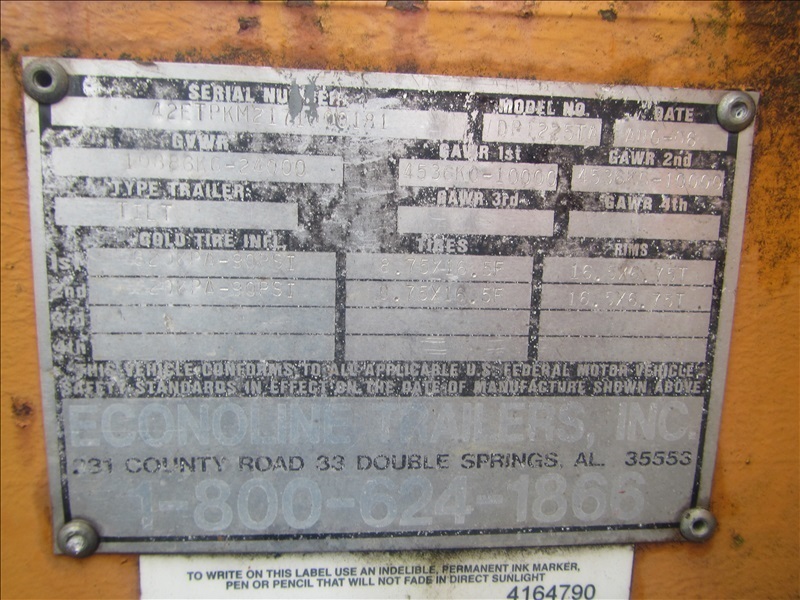 SERIAL NUMBER MODEL NO. DATE
GVWR GAWR 1st GAWR 2nd
4536KG-10000
TYPE TRAILER GAWR 3rd GAWR 4th
TILT
COLD TIRE INFL. TIRES RIMS
1st 8.75/16.5F 16.5/6.75I
2nd 8.75/16.5F 16.5/6.75I
3rd
4th
THIS VEHICLE CONFORMS TO ALL APPLICABLE U.S. FEDERAL MOTOR VEHICLE
SAFETY STANDARDS IN EFFECT ON THE DATE OF MANUFACTURE SHOWN ABOVE
ECONOLINE TRAILERS, INC.
231 COUNTY ROAD 33 DOUBLE SPRINGS, AL. 35553
1-800-624-1866
TO WRITE ON THIS LABEL USE AN INDELIBLE, PERMANENT INK MARKER,
PEN OR PENCIL THAT WILL NOT FADE IN DIRECT SUNLIGHT
4164790